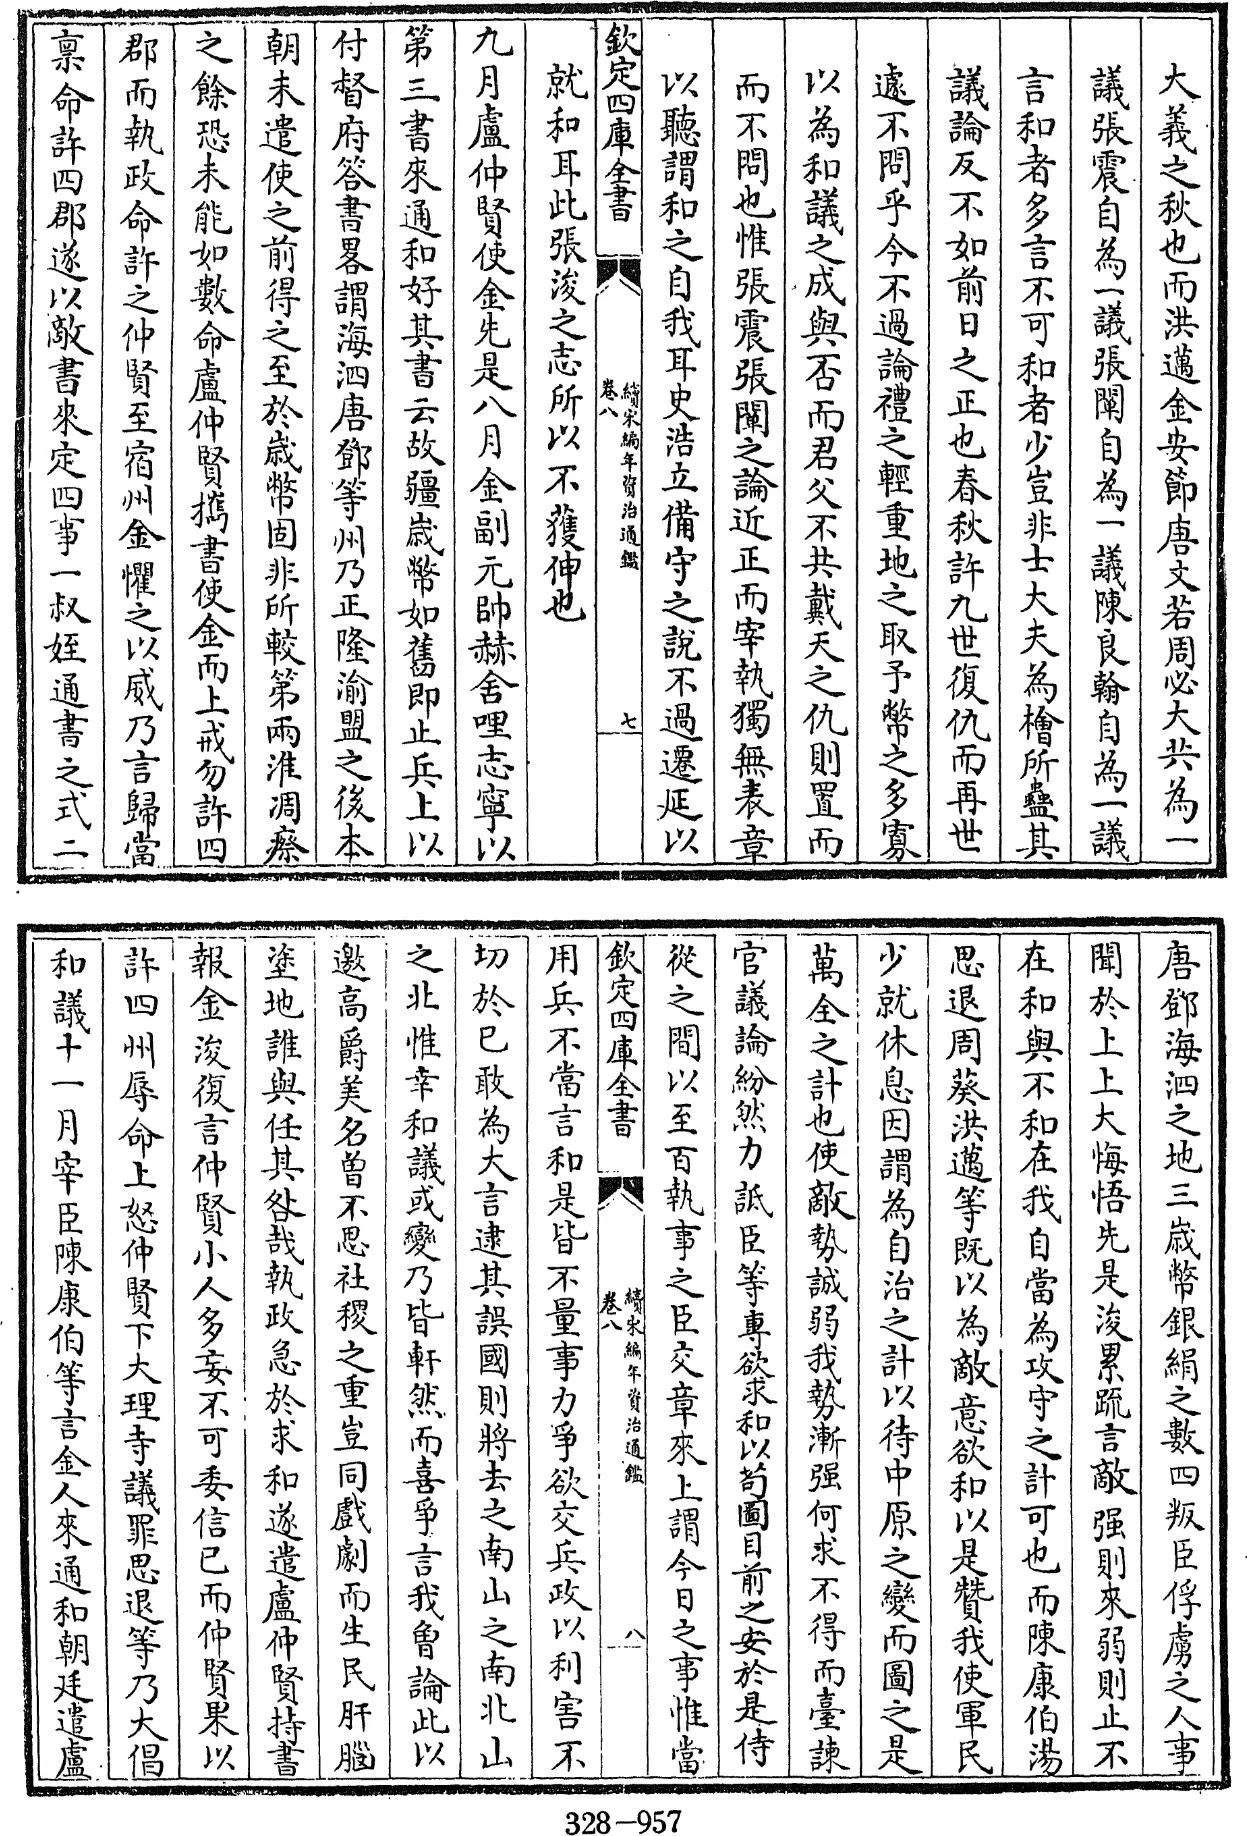 大義之秋也而洪邁金安節唐文若周必大共為一
議張震自為一議張闡自為一議陳良翰自為一議
言和者多言不可和者少豈非士大夫為檜所蠱其
議論反不如前日之正也春秋許九世復仇而再世
遽不問乎今不過論禮之輕重地之取予幣之多寡
以為和議之成與否而君父不共戴天之仇則置而
而不問也惟張震張闡之論近正而宰執獨無表章
以聽謂和之自我耳史浩立備守之說不過遷延以
欽定四庫全書
續宋編年資治通鑑
卷八
七
就和耳此張浚之志所以不獲伸也
九月盧仲賢使金先是八月金副元帥赫舍哩志寧以
第三書來通和好其書云故疆歲幣如舊即止兵上以
付督府答書畧謂海泗唐鄧等州乃正隆渝盟之後本
朝未遣使之前得之至於歲幣固非所較第兩淮凋瘵
之餘恐未能如數命盧仲賢攜書使金而上戒勿許四
郡而執政命許之仲賢至宿州金懼之以威乃言歸當
禀命許四郡遂以敵書來定四事一叔姪通書之式二
唐鄧海泗之地三歲幣銀絹之數四叛臣俘虜之人事
聞於上上大悔悟先是浚累疏言敵强則來弱則止不
在和與不和在我自當為攻守之計可也而陳康伯湯
思退周葵洪邁等既以為敵意欲和以是贊我使軍民
少就休息因謂為自治之計以待中原之變而圖之是
萬全之計也使敵勢誠弱我勢漸强何求不得而臺諫
官議論紛然力詆臣等專欲求和以苟圖目前之安於是侍
從之間以至百執事之臣交章來上謂今日之事惟當
欽定四庫全書
續宋編年資治通鑑
卷八
八
用兵不當言和是皆不量事力爭欲交兵政以利害不
切於已敢為大言逮其誤國則將去之南山之南北山
之北惟幸和議或變乃皆軒然而喜爭言我魯論此以
邀高爵美名曾不思社稷之重豈同戲劇而生民肝腦
塗地誰與任其咎哉執政急於求和遂遣盧仲賢持書
報金浚復言仲賢小人多妄不可委信已而仲賢果以
許四州辱命上怒仲賢下大理寺議罪思退等乃大倡
和議十一月宰臣陳康伯等言金人來通和朝廷遣盧
328-957